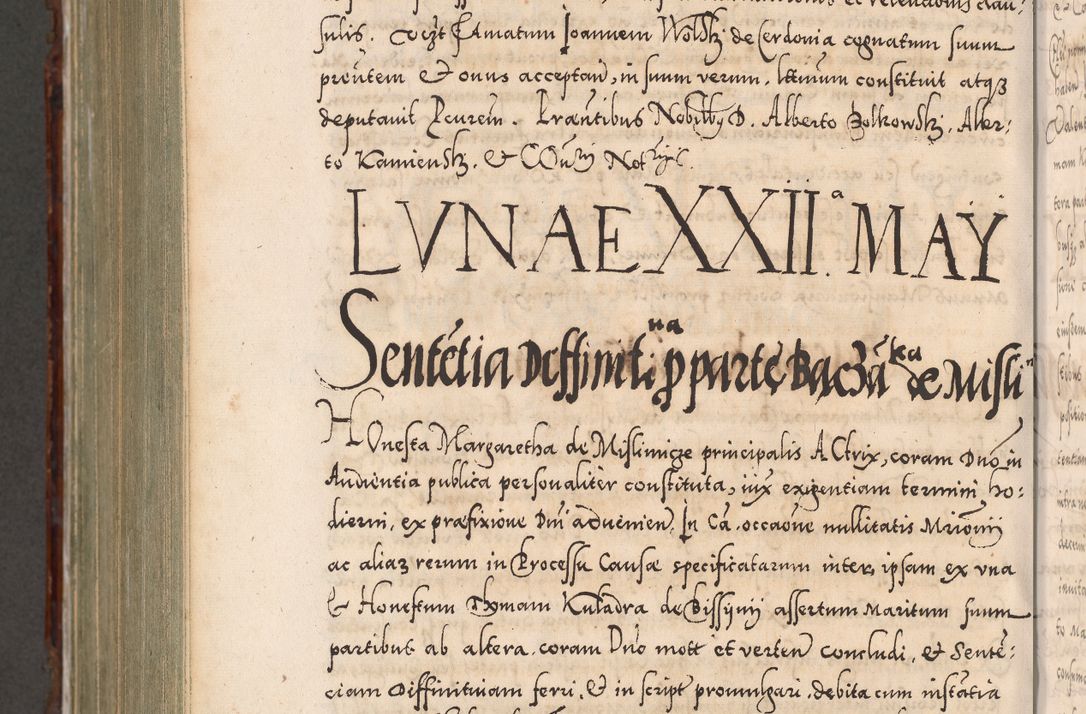 sulis. Famatum Ioannem Wolski de Cerdonia cognatum suum
pr̃ntem & onus acceptañ, in suum verum, lttimum constituit atqꝫ
deputavit Pcurem̃. Præñtibus Nobilbꝫ D. Alberto Zolkowski, Alber:
to Kamienski, &
LVNAE XXII.ª MAŸ
Sentẽtia Deffinitiua ꝑ parte Baczãka de Misli
HOnesta Margaretha de Mislimicze principalis ACtrix, coram Dño in
Audientia publica personaliter constituta, iux exigentiam termini ho:
dierni, ex præfixione Dñi advenieñ. In Cã. occaõne nullitatis Mr̃ionÿ
ac aliaꝝ rerum in Processu Causæ specificatarum inter, ipsam ex vna
& Honestum Thomam Kuladra de Bissÿnÿ assertum Maritum suum
partibus ab altera, coram Dño mott et verteñ concludi, & Sentẽ:
ciam Diffinitivam ferri, & in script promulgari, debita cum instãtia